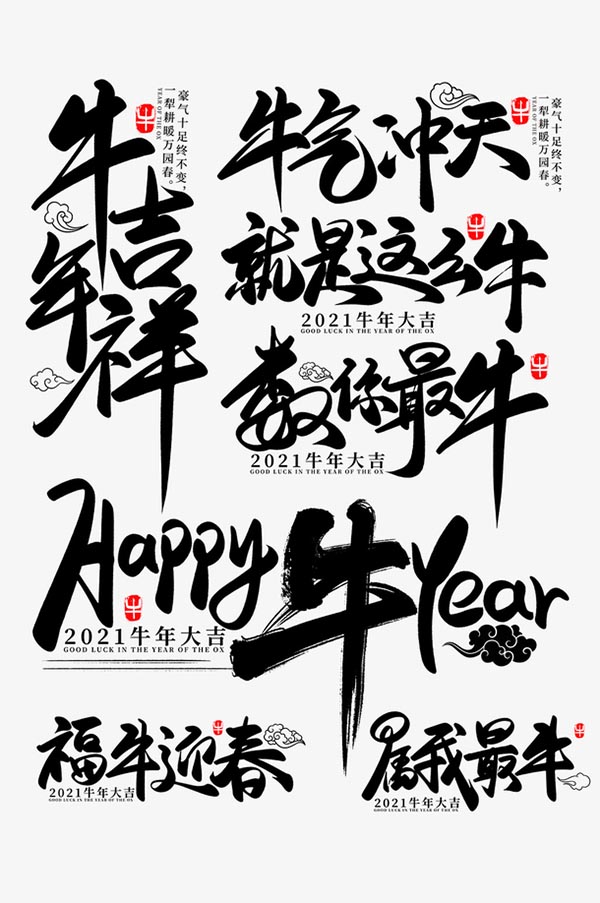 牛年
吉祥
豪气十足终不变，
一犁耕暖万园春。
YEAR OF THE OX
牛
牛气冲天
豪气十足终不变，
一犁耕暖万园春。
YEAR OF THE OX
牛
就是这么牛
牛
2021牛年大吉
GOOD LUCK IN THE YEAR OF THE OX
数你最牛
牛
2021牛年大吉
GOOD LUCK IN THE YEAR OF THE OX
Happy牛Year
牛
2021牛年大吉
GOOD LUCK IN THE YEAR OF THE OX
福牛迎春
牛
2021牛年大吉
GOOD LUCK IN THE YEAR OF THE OX
属我最牛
牛
2021牛年大吉
GOOD LUCK IN THE YEAR OF THE OX